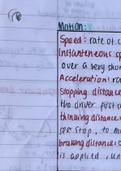 Motion:
Speed: rate of c
Instantaneous sp
over a very shor
Acceleration: ra
Stopping distance
the driver first
thinking distance:
see stop, to
braking distance:
is applied, un